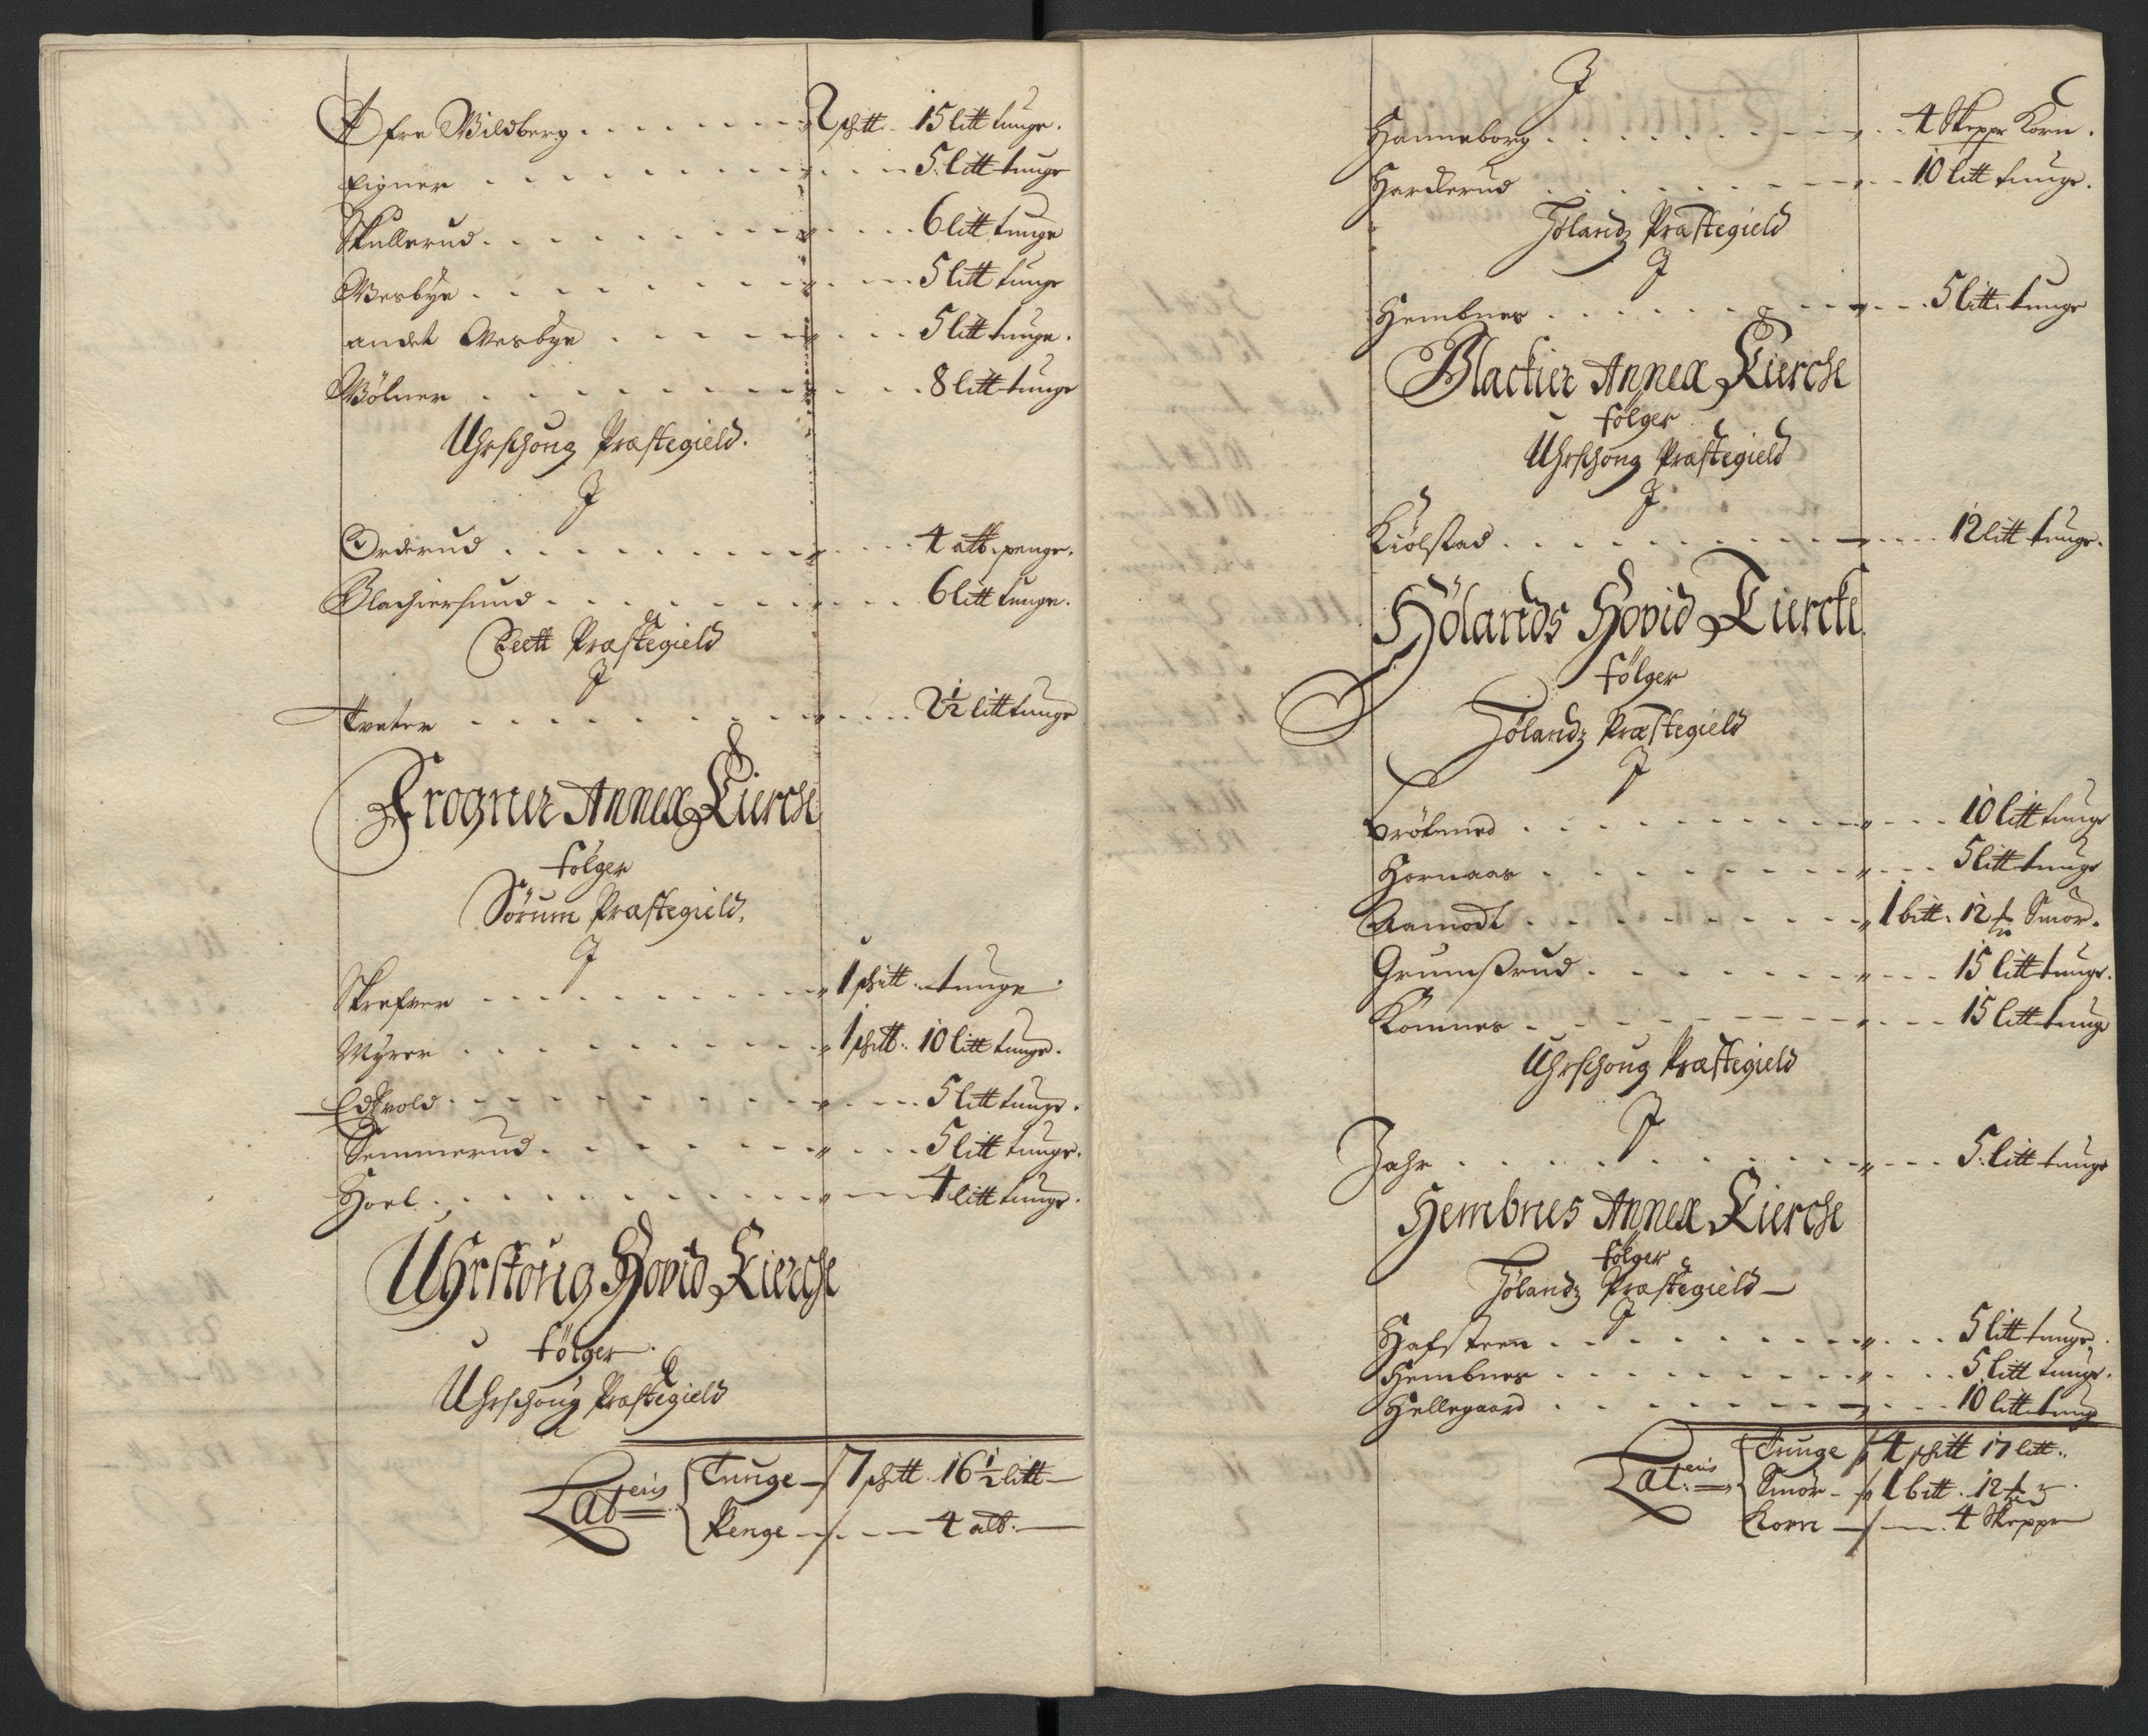 Øfre Wildberg . . . . . . . 2 schll. 15 litt tunge.
Eigner . . . . . . . . 5 litt tunge
Skullerud . . . . . . . . 6 litt tunge
Wesbye . . . . . . . . 5 litt tunge
andet Wesbye . . . . . . 5 litt tunge.
Wølner . . . . . . . . 8 litt tunge
Uhrschoug Præstegield.
J
Orderud . . . . . . . . 4 alb. penge.
Blachiersund . . . . . . . 6 litt tunge.
Feett Præstegield
J
Tveter . . . . . . . . 2½ litt tunge
Frogner Annex Kierche
følger
Sørum Præstegield.
J
Skrefven . . . . . . . 1 schll. tunge.
Myrer . . . . . . . 1 schll. 10 litt tunge.
Edsvold . . . . . . . . 5 litt tunge.
Semmerud . . . . . . . 5 litt tunge.
Hoel . . . . . . . . 4 litt tunge.
Uhrskoug Hovid Kierche
følger
Uhrschoug Præstegield
Lateris Tunge 7 schll. 16½ litt
Penge 4 alb.
J
Hanneborg . . . . . . . 4 Skepper Korn.
Harkerud . . . . . . . 10 litt tunge.
Hølandz Præstegield
J
Hembnes . . . . . . . 5 litt. tunge
Blackier Annex Kierche
følger
Uhrschoug Præstegield
J
Kiølstad . . . . . . . 12 litt tunge.
Hølands Hovid Kiercke
følger
Hølandz Præstegield
J
Brøtmed . . . . . . . 10 litt tunge
Hornaas . . . . . . . 5 litt tunge
Aamodt . . . . . . . 1 bitt. 12 Smør.
Grumsrud . . . . . . . 15 litt tunge.
Kømnes . . . . . . . 15 litt tunge
Uhrschoug Præstegield
J
Jahr . . . . . . . 5 litt tunge
Hembnes Annex Kierche
følger
Hølandz Præstegield
J
Hafsteen . . . . . . . 5 litt tunge.
Hembnes . . . . . . . 5 litt tunge.
Hellegaard . . . . . . . 10 litt tunge
Lateris Tunge 4 schll 17 litt.
Smør 1 bitt. 12
Korn 4 Skepper